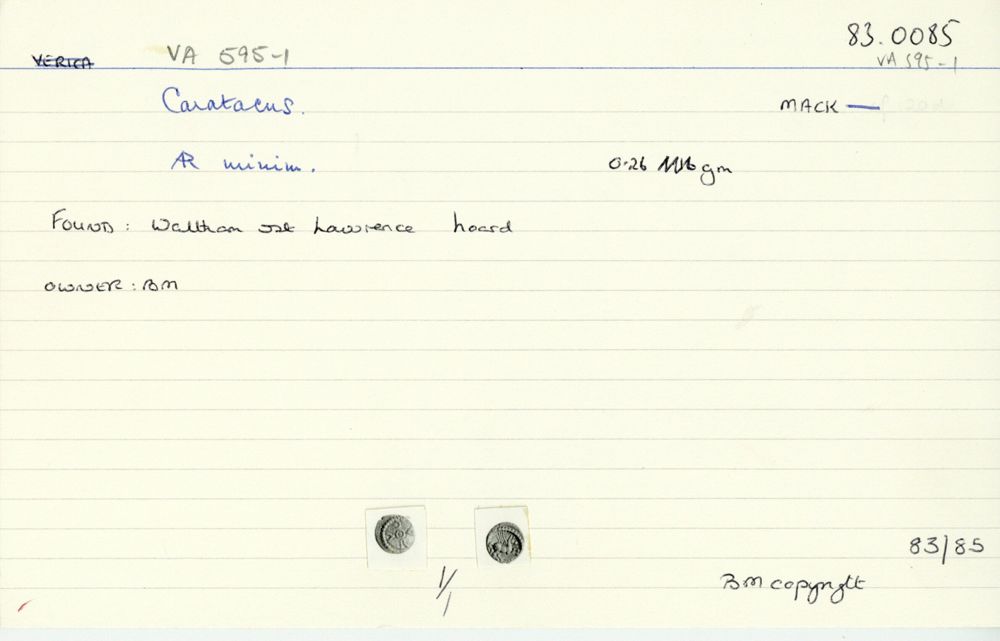 83.0085
VERICA VA 595-1 VA 595-1
Caratacus. MACK —
AR minim. 0.26 gm
FOUND: Waltham St Lawrence hoard
OWNER: BM
83/85
1/1 BM copyright